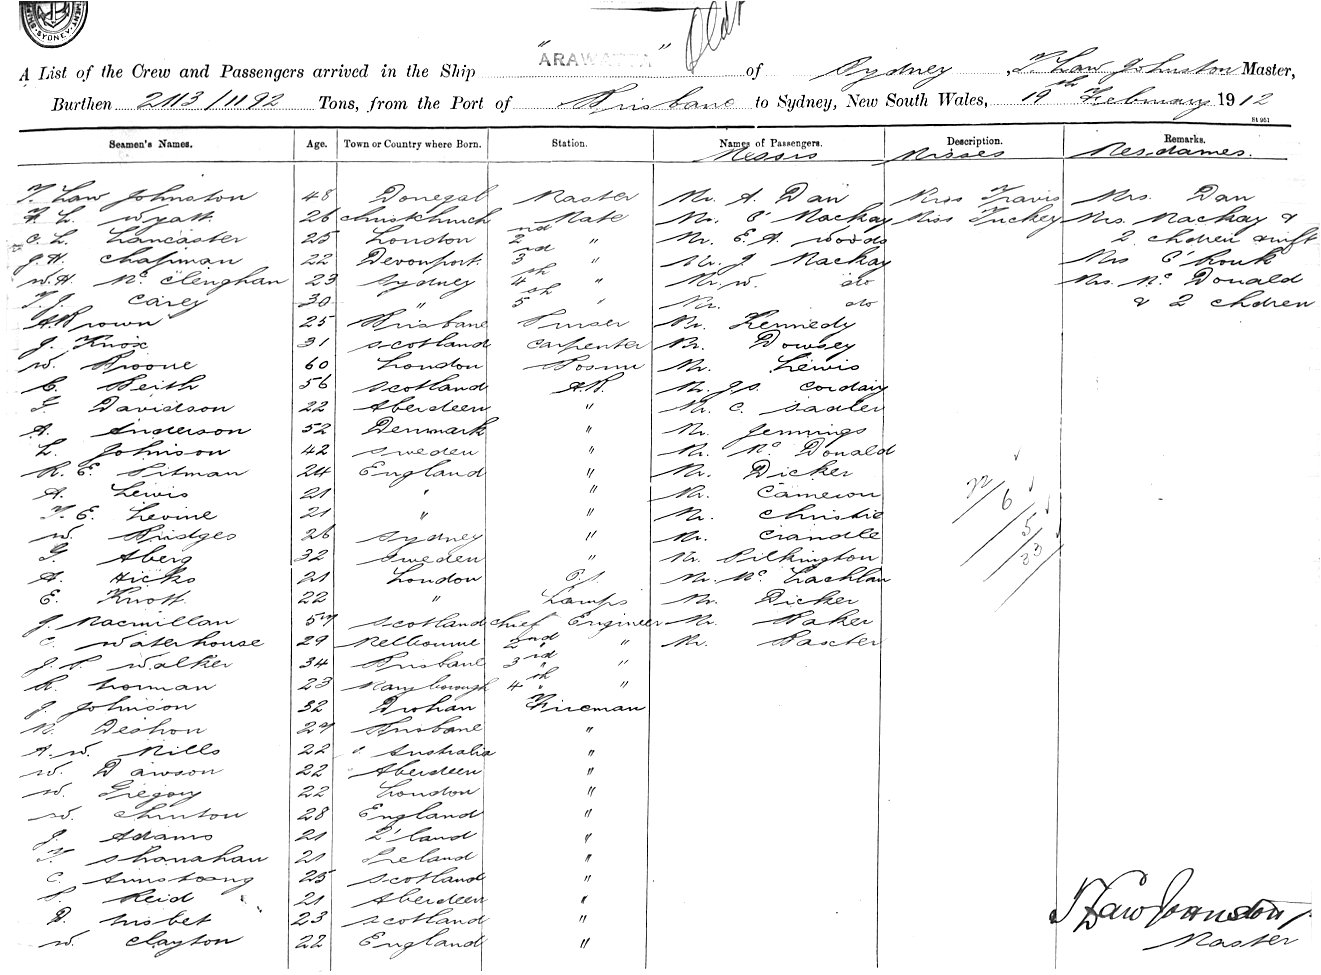 SYDNEY
"ARAWATTA"
A List of the Crew and Passengers arrived in the Ship of Sydney, T. Law Johnston Master,
Burthen 2113/1192 Tons, from the Port of Brisbane to Sydney, New South Wales, 19th February 1912
St 951
Seamen's Names. Age. Town or Country where Born. Station. Names of Passengers. Description. Remarks.
Messrs Misses Mesdames.
T. Law Johnston 48 Donegal Master Mr. A. Dan Miss Travis Mrs. Dan
H. L. Wyatt 26 Christchurch Mate Mr. C. Mackay Miss Tuckey Mrs. Mackay &
C. L. Lancaster 25 London 2nd " Mr. E. A. Woods 2 chdren & inft
J. H. Chapman 22 Devonport 3rd " Mr. J. Mackay Mrs O'Rouk
W. H. Mc Clenghan 23 Sydney 4th " Mr. W. do Mrs. Mc Donald
T. J. Carey 30 " 5th " Mr. do & 2 chdren
A. Brown 25 Brisbane Purser Mr. Kennedy
J. Knox 31 Scotland Carpenter Mr. Dowsey
W. Broone 60 London Bosun Mr. Lewis
C. Beith 56 Scotland A.B. Mr. Js. Corday
G. Davidson 22 Aberdeen " Mr. C. Sadler
A. Anderson 52 Denmark " Mr. Jennings
L. Johnson 42 Sweden " Mr. Mc Donald
R. E. Pitman 24 England " Mr. Dicker
A. Lewis 21 " " Mr. Cameron
T. E. Levine 21 " " Mr. Christie
W. Bridges 26 Sydney " Mr. Crandle
G. Aberg 32 Sweden " Mr. Pilkington
A. Hicks 21 London O.S. Mr. Mc Lachlan
E. Knott 22 " Lamps Mr. Dicker
J. Macmillan 57 Scotland Chief Engineer Mr. Baker
C. Waterhouse 29 Melbourne 2nd " Mr. Baxter
J. P. Walker 34 Brisbane 3rd " "
R. Norman 23 Maryborough 4th " "
J. Johnson 32 Fireman
R. Deshon 27 Brisbane "
A. W. Mills 22 " Australia "
W. Dawson 22 Aberdeen "
W. Gregory 22 London "
W. Chinton 28 England "
J. Adams 21 Z'land "
T. Shanahan 21 Ireland "
C. Armstrong 25 Scotland "
P. Reid 21 Aberdeen "
D. Nisbet 23 Scotland "
W. Clayton 22 England "
22/6/5/33
T Law Johnston
Master